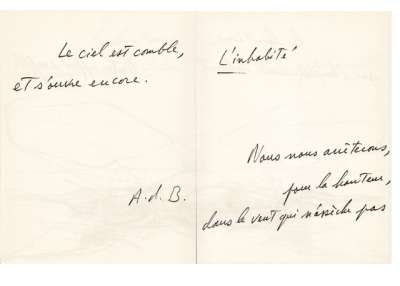 Le ciel est comble,
et s'ouvre encore.
A.d.B.
L'inhabité
Nous nous arrêterons,
pour la hauteur,
dans le vent qui n'assèche pas